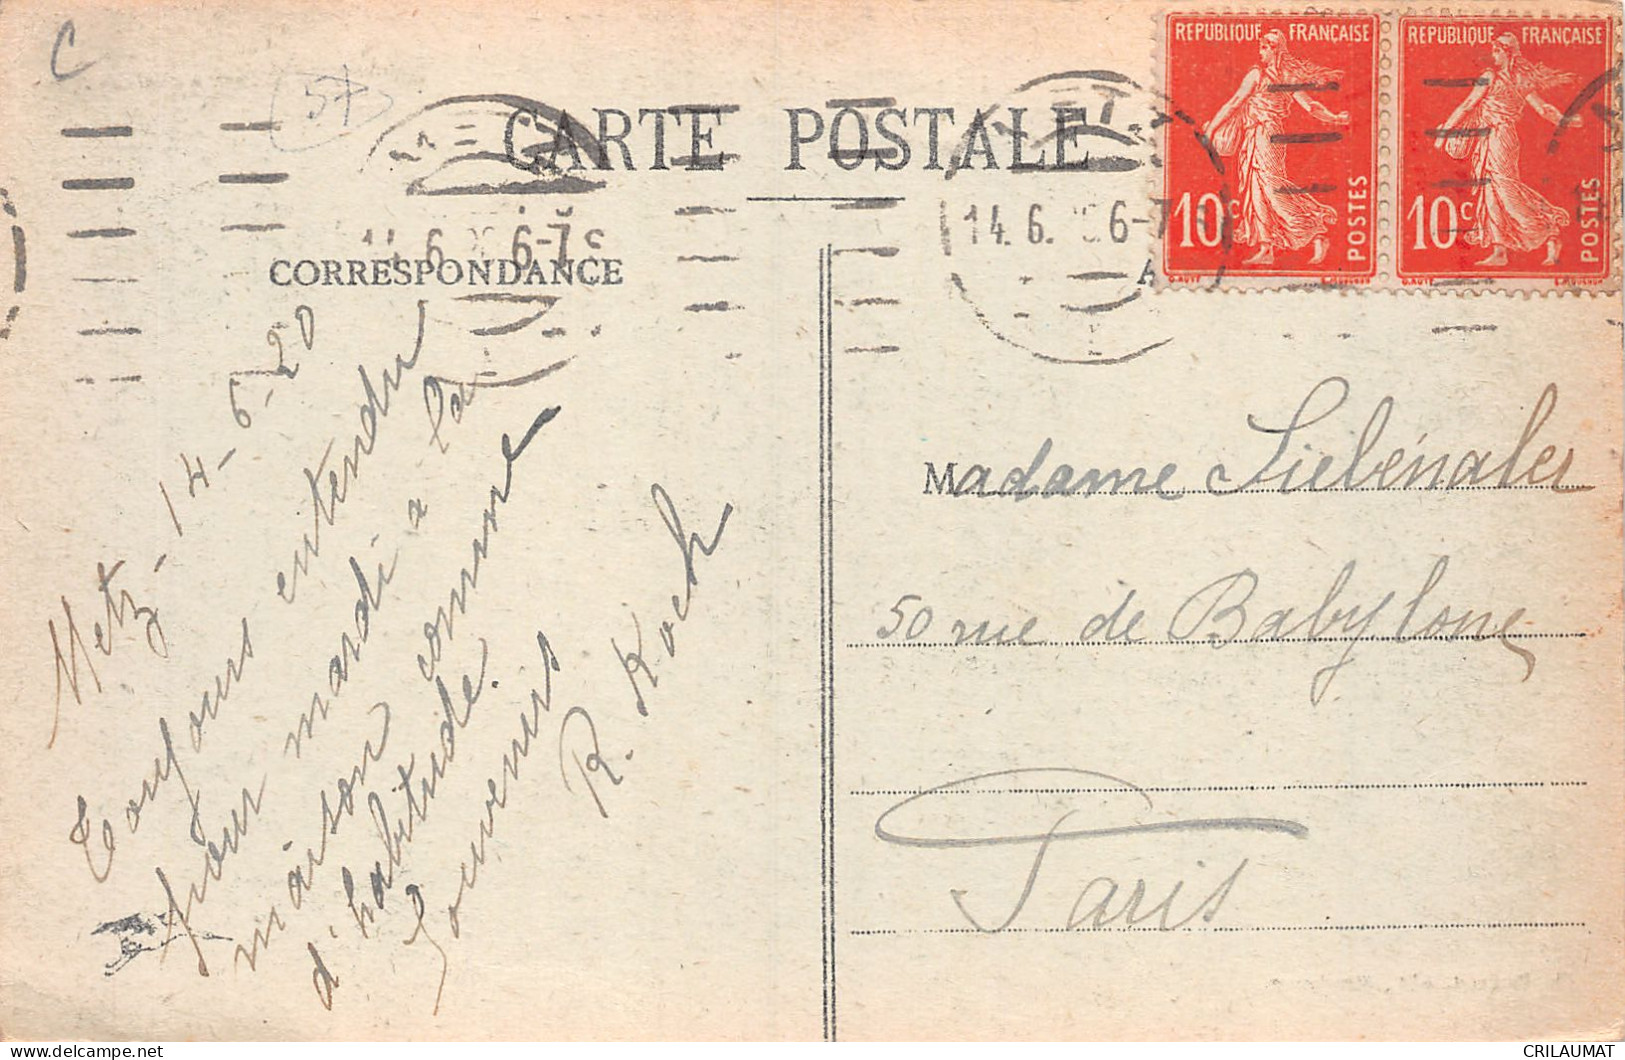 C
(57)
CARTE POSTALE
REPUBLIQUE FRANÇAISE
10c
POSTES
REPUBLIQUE FRANÇAISE
10c
POSTES
METZ
14.6. 6-7
METZ
14.6. 6-7
A
CORRESPONDANCE
Metz - 14-6-20
Toujours entendu
pour mardi à la
maison comme
d'habitude.
Souvenirs
R. Koch
Madame Siebénaler
50 rue de Babylone
Paris
CRILAUMAT